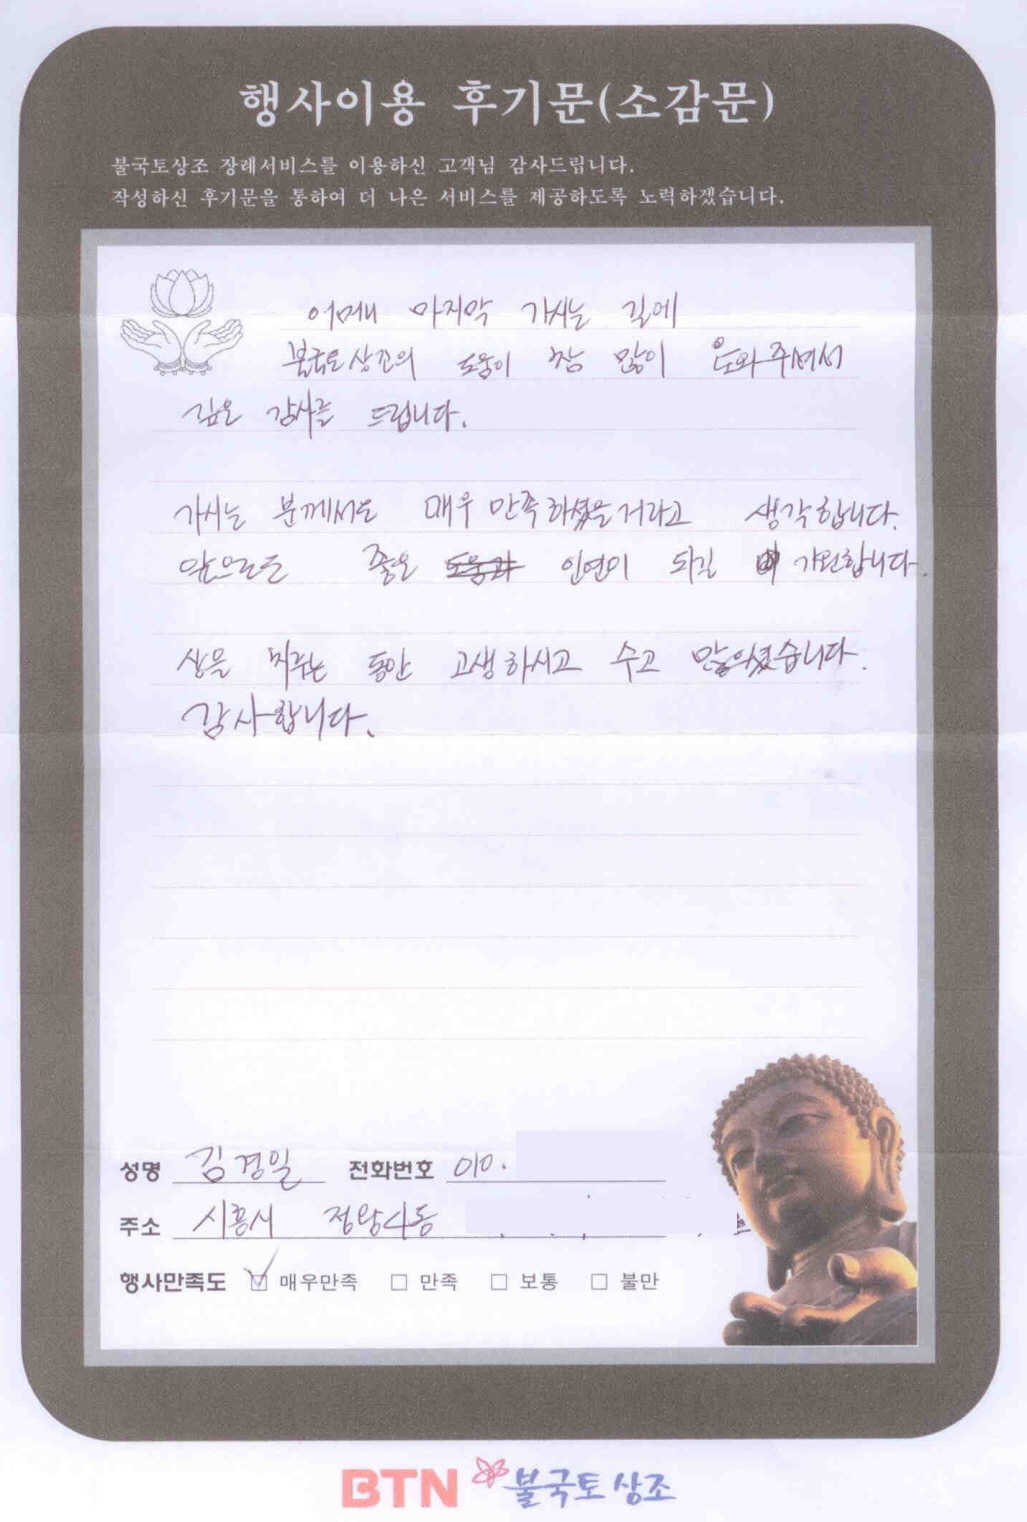 행사이용 후기문(소감문)
불국토상조 장례서비스를 이용하신 고객님 감사드립니다.
작성하신 후기문을 통하여 더 나은 서비스를 제공하도록 노력하겠습니다.
어머니 마지막 가시는 길에
불국토상조의 도움이 참 많이 도와주셔서
깊은 감사를 드립니다.
가시는 분께서도 매우 만족하셨을거라고 생각합니다.
앞으로도 좋은 인연이 되길 기원합니다.
상을 치루는 동안 고생하시고 수고 많으셨습니다.
감사합니다.
성명 김경일 전화번호 010.
주소 시흥시 정왕4동
행사만족도 ☑ 매우만족 □ 만족 □ 보통 □ 불만
BTN 불국토상조